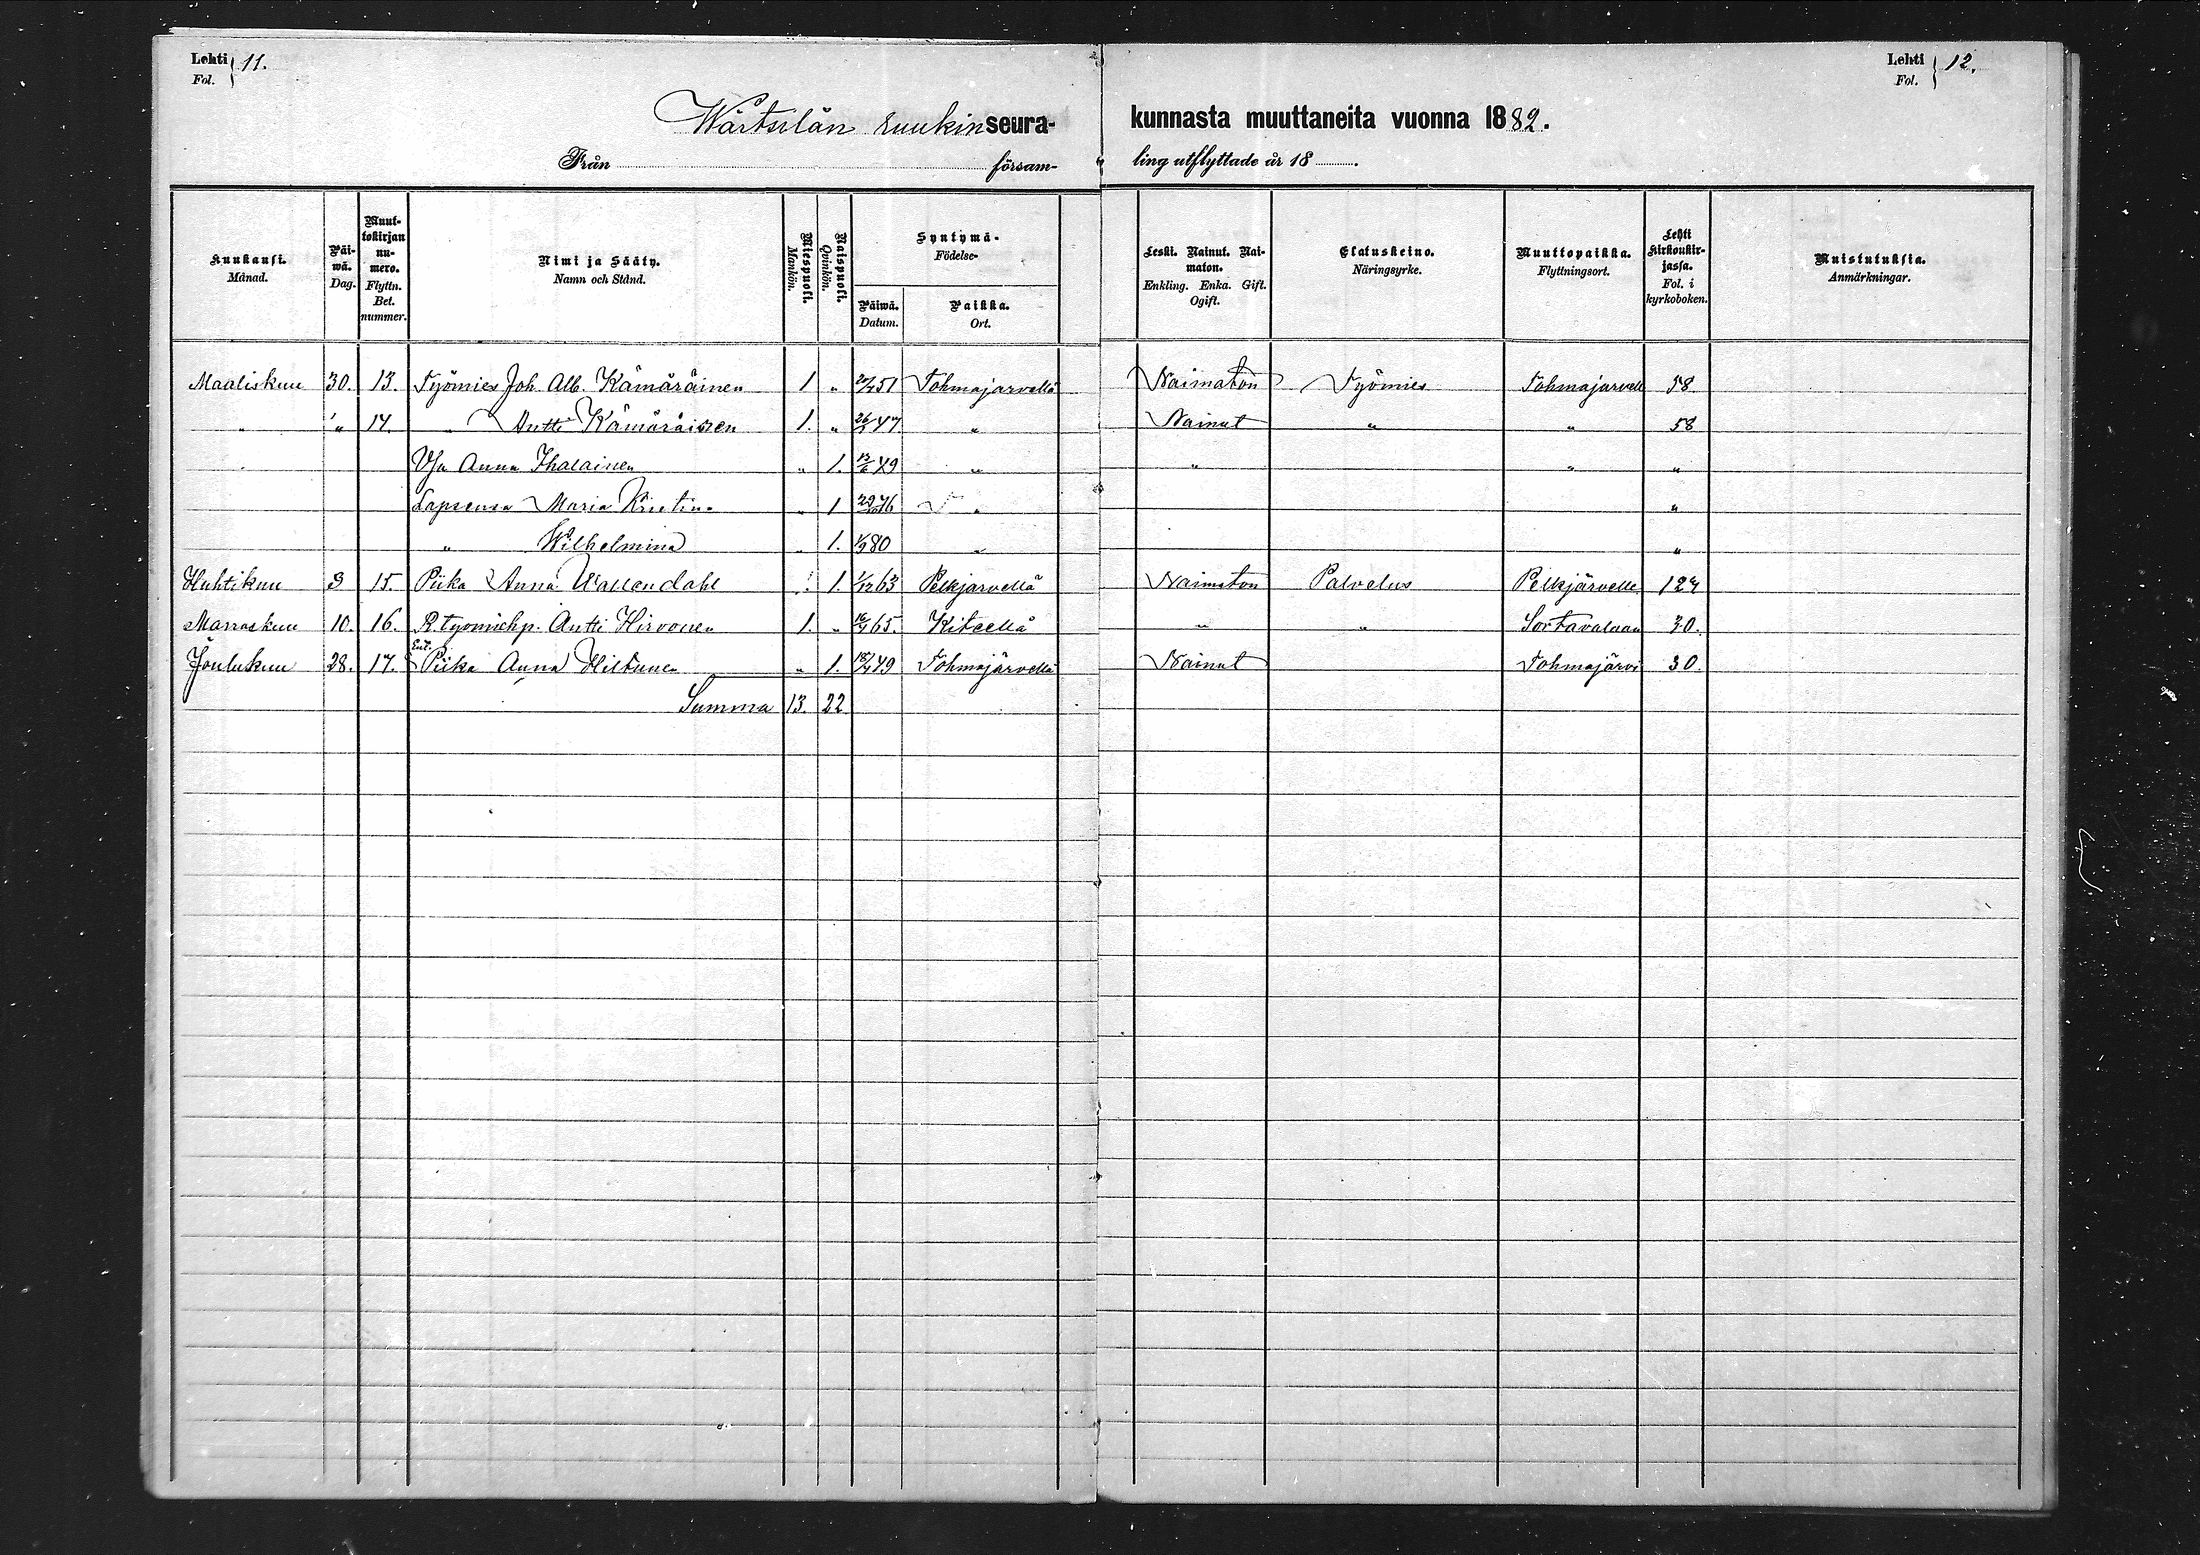 Lehti 11.
Fol.
Lehti 12.
Fol.
Wärtsilän ruukin seura- kunnasta muuttaneita vuonna 1882.
Från försam- ling utflyttade år 18
Kuukausi. Månad.
Päiwä. Dag.
Muuttokirjan numero. Flyttn. Bet. nummer.
Nimi ja Sääty. Namn och Stånd.
Miespuoli. Mankön.
Naispuoli. Qvinkön.
Syntymä- Födelse-
Päiwä. Datum.
Paikka. Ort.
Leski. Nainut. Naimaton. Enkling. Enka. Gift. Ogift.
Elatuskeino. Näringsyrke.
Muuttopaikka. Flyttningsort.
Lehti kirkonkirjassa. Fol. i kyrkoboken.
Muistutuksia. Anmärkningar.
Maaliskuu 30. 13. Työmies Joh. Alb. Kämäräinen 1 „ 51 Tohmajärvellä Naimaton Työmies Tohmajärvell 58.
„ „ 14. „ Antti Kämäräissen 1. „ 47 „ Nainut „ „ 58
Vh Anna Ihalainen „ 1. 13/6 49 „ „ „ „
Lapsensa Maria Kristina „ 1 76 „ „
„ Wilhelmina „ 1. 1/9 80 „ „
Huhtikuu 3 15. Piika Anna Wallendahl „ 1. 1/12 63 Pelkjärvellä Naimaton Palvelus Pelkjärvelle 127
Marraskuu 10. 16. R. työmiehp. Antti Hirvonen 1. „ 65. Kiteellä „ „ Sortavalaan 30.
Joulukuu 28. 17. Ent. Piika Anna Hiltunen „ 1. 49 Tohmajärvellä Nainut Tohmajärvi 30.
Summa 13. 22